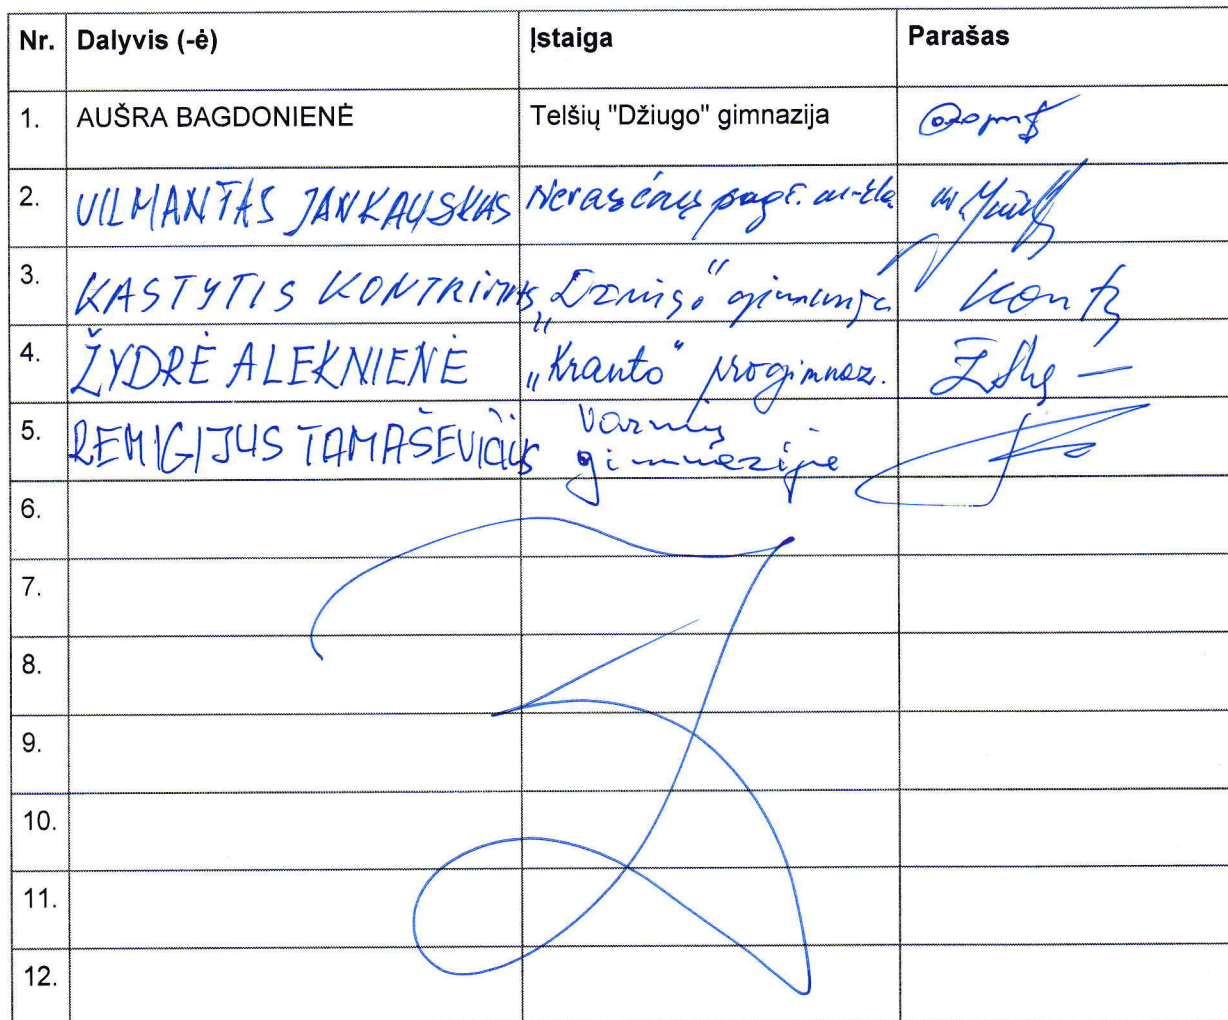 Nr. Dalyvis (-ė) Įstaiga Parašas
1. AUŠRA BAGDONIENĖ Telšių "Džiugo" gimnazija
2. VILMANTAS JANKAUSKAS
3. KASTYTIS KONTRIMAS „Džiugo“ gimnazija
4. ŽYDRĖ ALEKNIENĖ „Kranto“ progimnaz.
5. REMIGIJUS TAMAŠEVIČIUS Varnių
gimnazija
6.
7.
8.
9.
10.
11.
12.